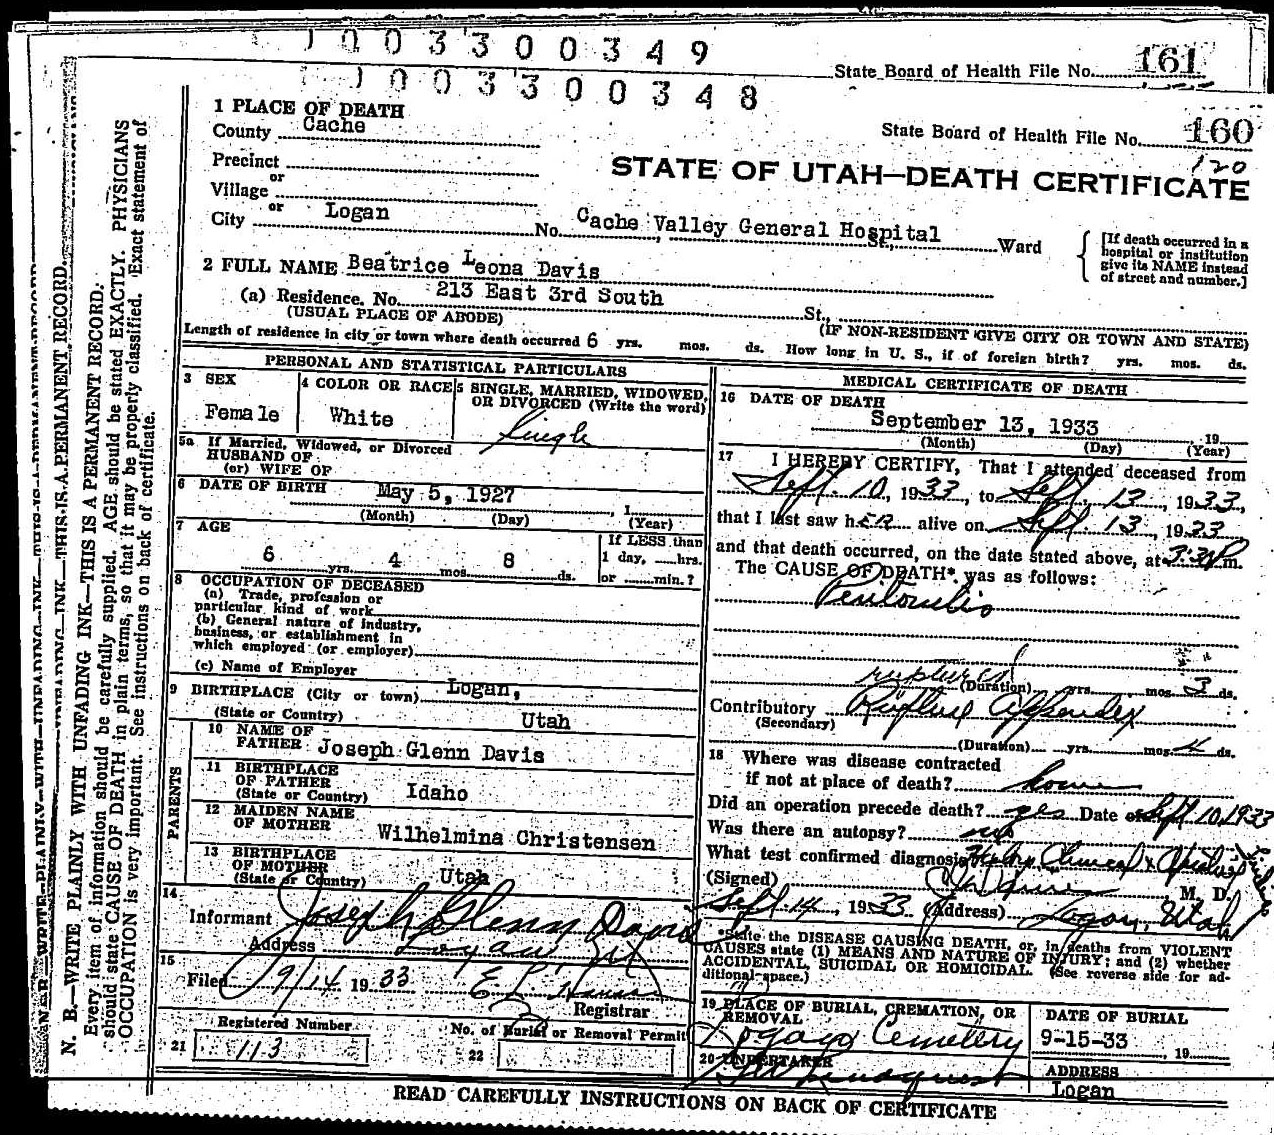 1003300349
State Board of Health File No. 161
1003300348
State Board of Health File No. 160
120
1 PLACE OF DEATH
County Cache
STATE OF UTAH—DEATH CERTIFICATE
Precinct
or
Village
or
City Logan No. Cache Valley General Hospital St., Ward
[If death occurred in a hospital or institution give its NAME instead of street and number.]
2 FULL NAME Beatrice Leona Davis
(a) Residence. No. 213 East 3rd South St.,
(USUAL PLACE OF ABODE) (IF NON-RESIDENT GIVE CITY OR TOWN AND STATE)
Length of residence in city or town where death occurred 6 yrs. mos. ds. How long in U. S., if of foreign birth? yrs. mos. ds.
PERSONAL AND STATISTICAL PARTICULARS
3 SEX
Female
4 COLOR OR RACE
White
5 SINGLE, MARRIED, WIDOWED, OR DIVORCED (Write the word)
Single
5a If Married, Widowed, or Divorced
HUSBAND OF
(or) WIFE OF
6 DATE OF BIRTH May 5, 1927 , 1
(Month) (Day) (Year)
7 AGE
6 yrs. 4 mos. 8 ds.
If LESS than
1 day, hrs.
or min.?
8 OCCUPATION OF DECEASED
(a) Trade, profession or
particular kind of work
(b) General nature of industry,
business, or establishment in
which employed (or employer)
(c) Name of Employer
9 BIRTHPLACE (City or town) Logan,
(State or Country) Utah
PARENTS
10 NAME OF
FATHER Joseph Glenn Davis
11 BIRTHPLACE
OF FATHER
(State or Country) Idaho
12 MAIDEN NAME
OF MOTHER Wilhelmina Christensen
13 BIRTHPLACE
OF MOTHER
(State or Country) Utah
14
Informant Joseph Glenn Davis
Address Logan Ut
15
Filed 9/14 1933
Registrar
Registered Number
21 113
No. of Burial or Removal Permit
22
MEDICAL CERTIFICATE OF DEATH
16 DATE OF DEATH
September 13, 1933 19
(Month) (Day) (Year)
17 I HEREBY CERTIFY, That I attended deceased from
Sept. 10, 1933, to Sept. 13, 1933,
that I last saw her alive on Sept. 13, 1933
and that death occurred, on the date stated above, at 3:30 P.m.
The CAUSE OF DEATH* was as follows:
Peritonitis
(Duration) yrs. mos. 3 ds.
ruptured
Contributory Ruptured Appendix
(Secondary)
(Duration) yrs. mos. 4 ds.
18 Where was disease contracted
if not at place of death? home
Did an operation precede death? yes Date of Sept 10, 1933
Was there an autopsy? no
What test confirmed diagnosis? History Clinical &
(Signed) M. D.
Sept. 14, 1933 (Address) Logan, Utah
*State the DISEASE CAUSING DEATH, or, in deaths from VIOLENT
CAUSES state (1) MEANS AND NATURE OF INJURY; and (2) whether
ACCIDENTAL, SUICIDAL OR HOMICIDAL. (See reverse side for ad-
ditional space.)
19 PLACE OF BURIAL, CREMATION, OR
REMOVAL
Logan Cemetery
DATE OF BURIAL
9-15-33 , 19
20 UNDERTAKER
ADDRESS
Logan
READ CAREFULLY INSTRUCTIONS ON BACK OF CERTIFICATE
N. B.—WRITE PLAINLY WITH UNFADING INK—THIS IS A PERMANENT RECORD.
Every item of information should be carefully supplied. AGE should be stated EXACTLY. PHYSICIANS
should state CAUSE OF DEATH in plain terms, so that it may be properly classified. Exact statement of
OCCUPATION is very important. See instructions on back of certificate.